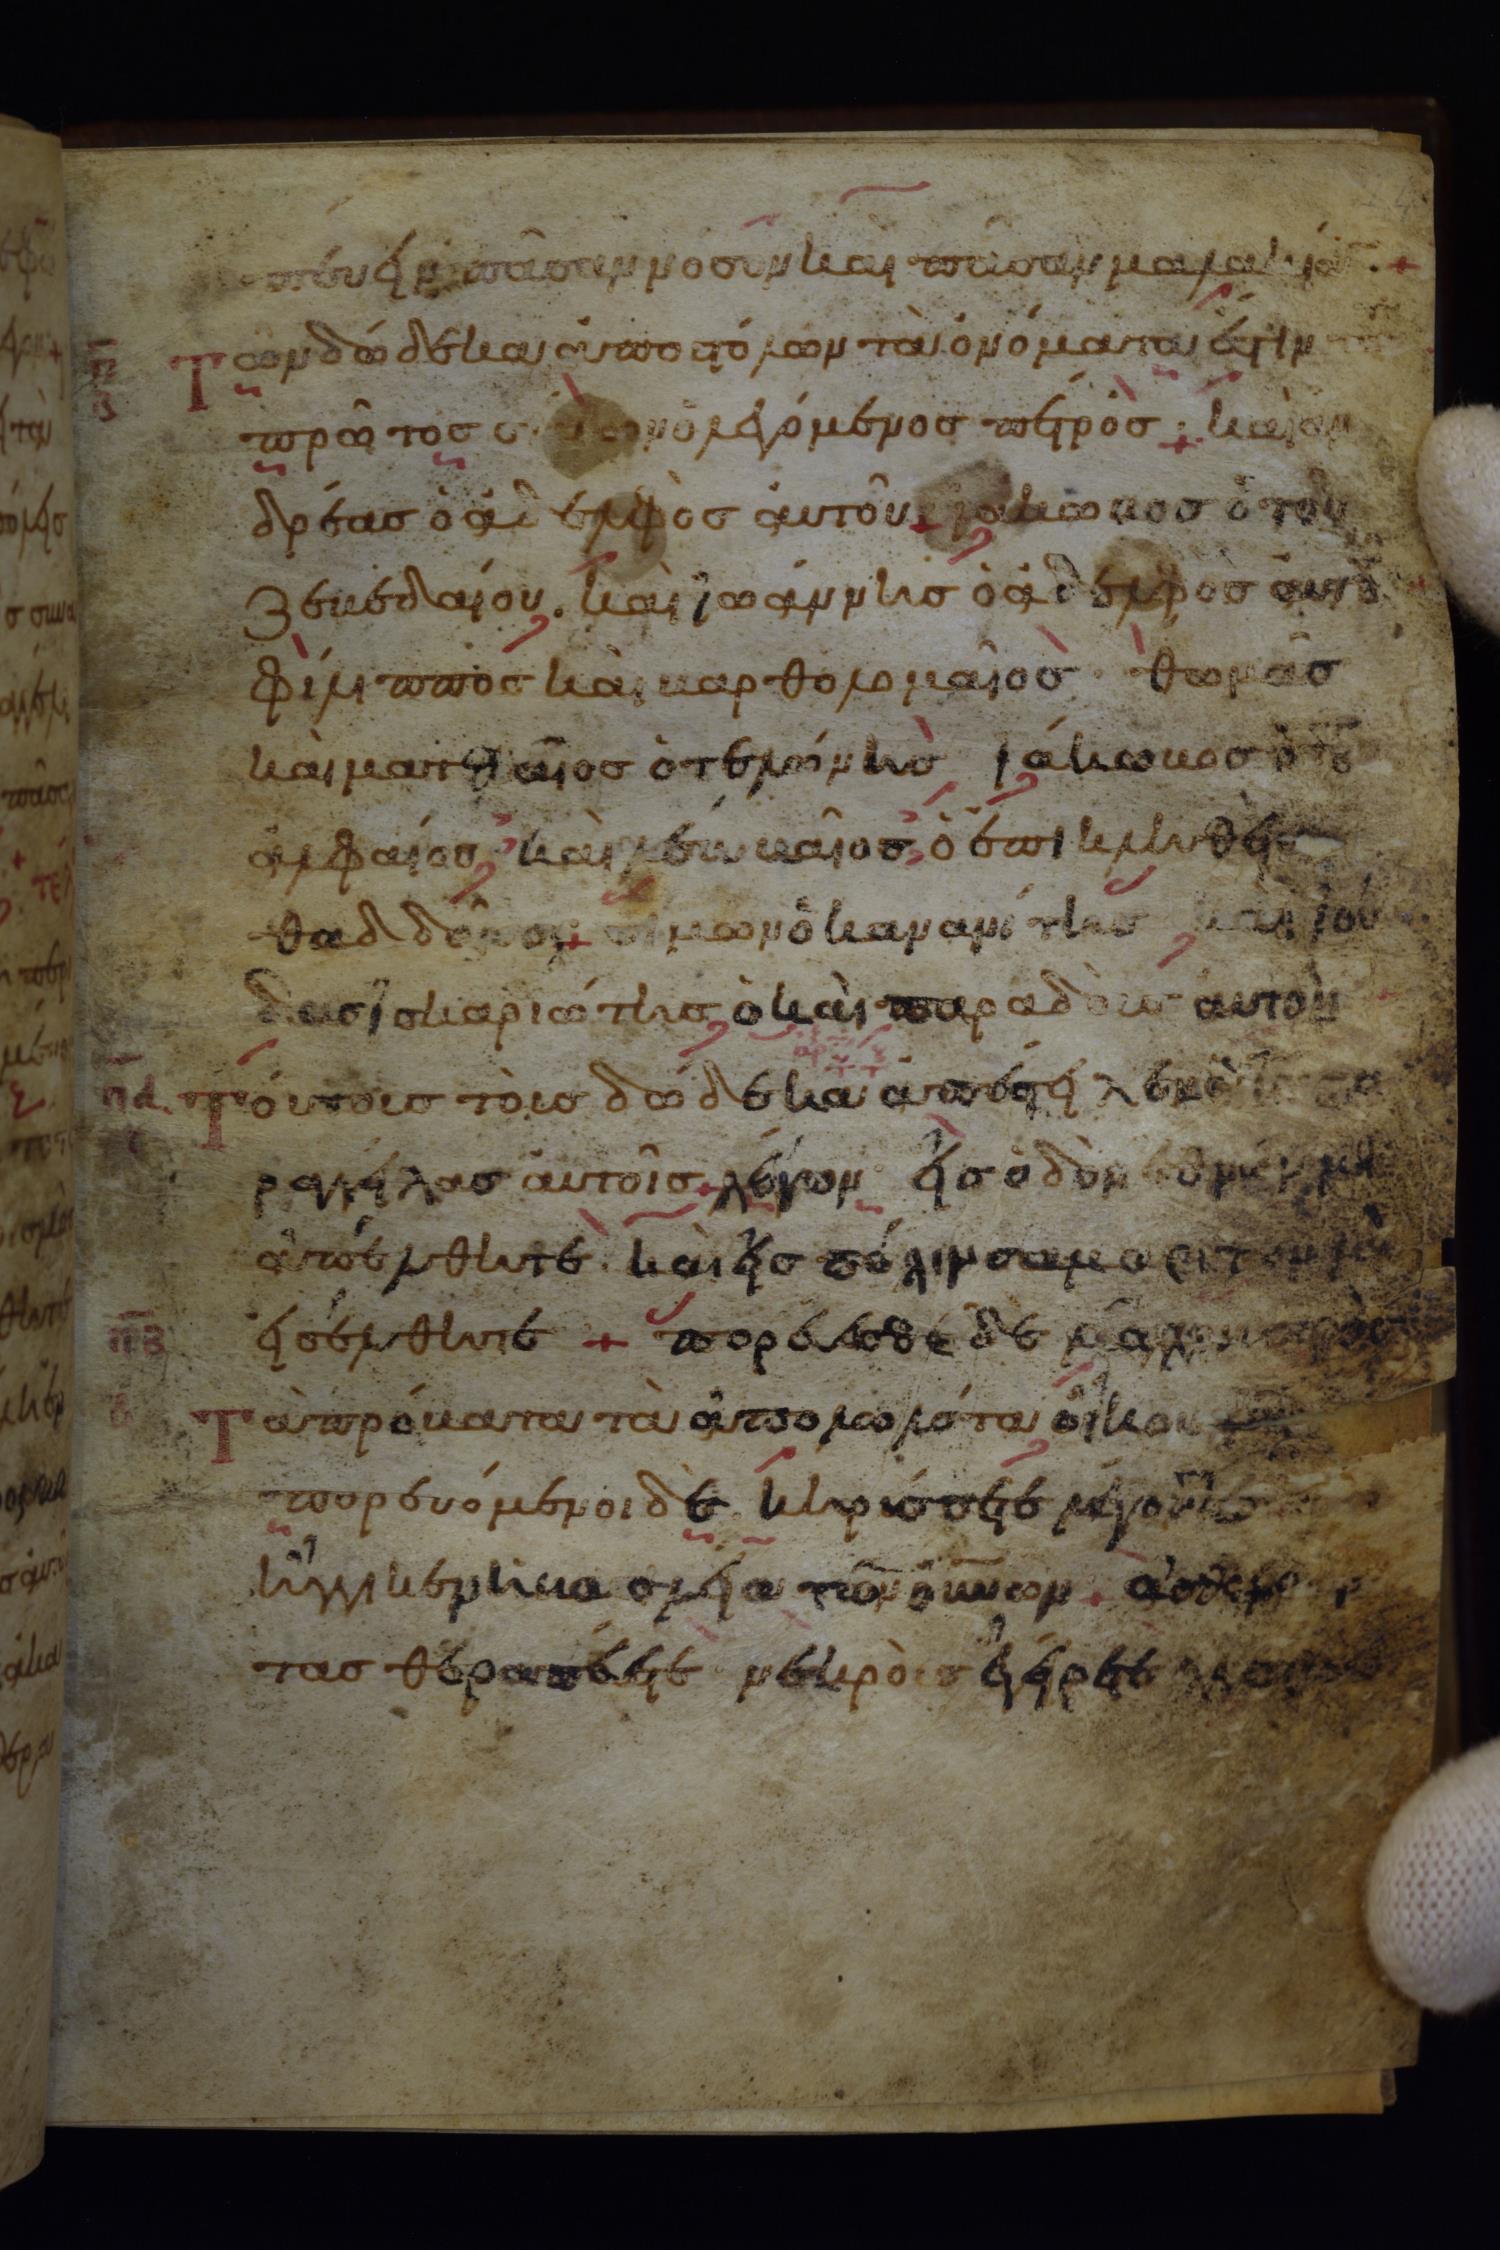 πεύειν πᾶσαν νοσον και πᾶσαν μαλακίαν +
π Των δώδεκα αποστόλων τὰ ὀνόματα ἐστιν
β πρῶτος σίμων ὁ λεγόμενος πετρὸς + και αν
δρέας ὁ ἀδελφὸς αυτοῦ + ιακωβος ὁ του
ζεβεδαίου. και ϊωάννης ὁ ἀδελφος αυτοῦ
φίλιππος και βαρθολομαῖος· θωμᾶς
και ματθαῖος ὁ τελώνης ιάκωβος ὁ τοῦ
ἀλφαίου και λεββαῖος ὁ ἐπικληθεὶς
θαδδαῖος + σίμων ὁ κανανίτης και ϊού
δας ϊσκαριώτης ὁ και παραδοὺς αυτον
πα Τούτους τοις δώδεκα ἀπέστειλεν ὁ
ραγγείλας αυτοῖς + λέγων εἰς ὁδὸν εθνῶν μη
ἀπέλθητε· και εἰς πόλιν σαμαριτων μὴ
πβ εισέλθητε + πορεύεσθε δε μᾶλλον προς
Τὰ πρόβατα τὰ ἀπολωλότα οἴκου
πορευόμενοι δε κηρύσσετε λέγοντες
ἤγγικεν η βασιλεία τῶν οὐνων + ἀσθενουν
τας θεραπεύετε νεκροὺς ἐγείρετε